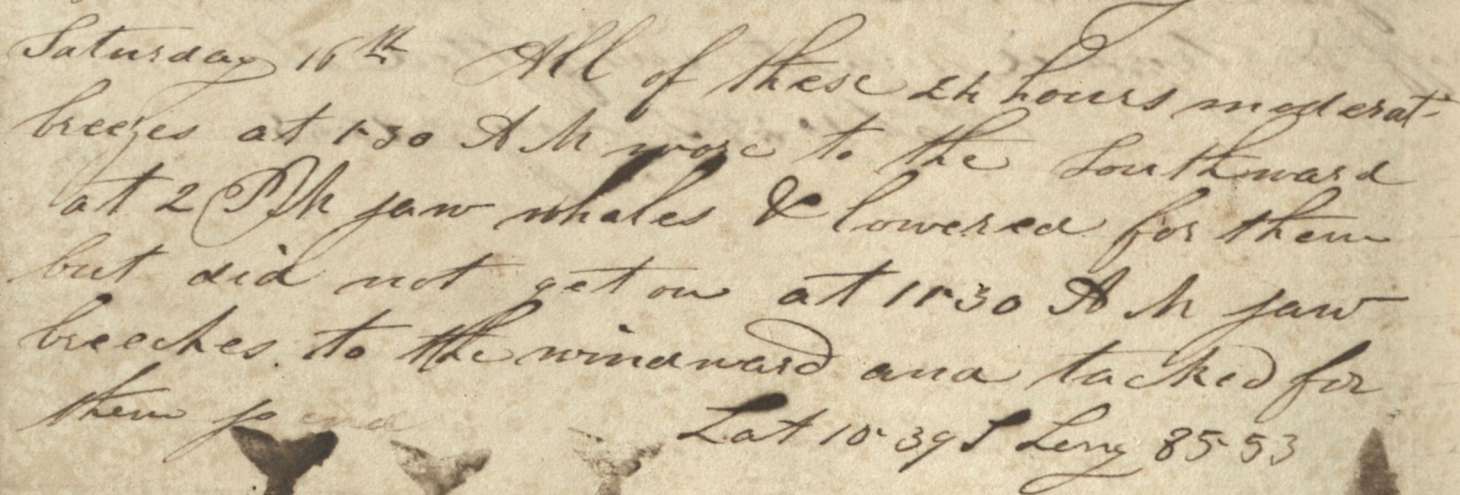 Saturday 16th All of these 24 hours moderat
breezes at 1-30 A M wore to the Southward
at 2 P M saw whales & lowered for them
but did not get on at 11-30 A M saw
breeches to the windward and tacked for
them so end
Lat 10-39 S Long 85-53